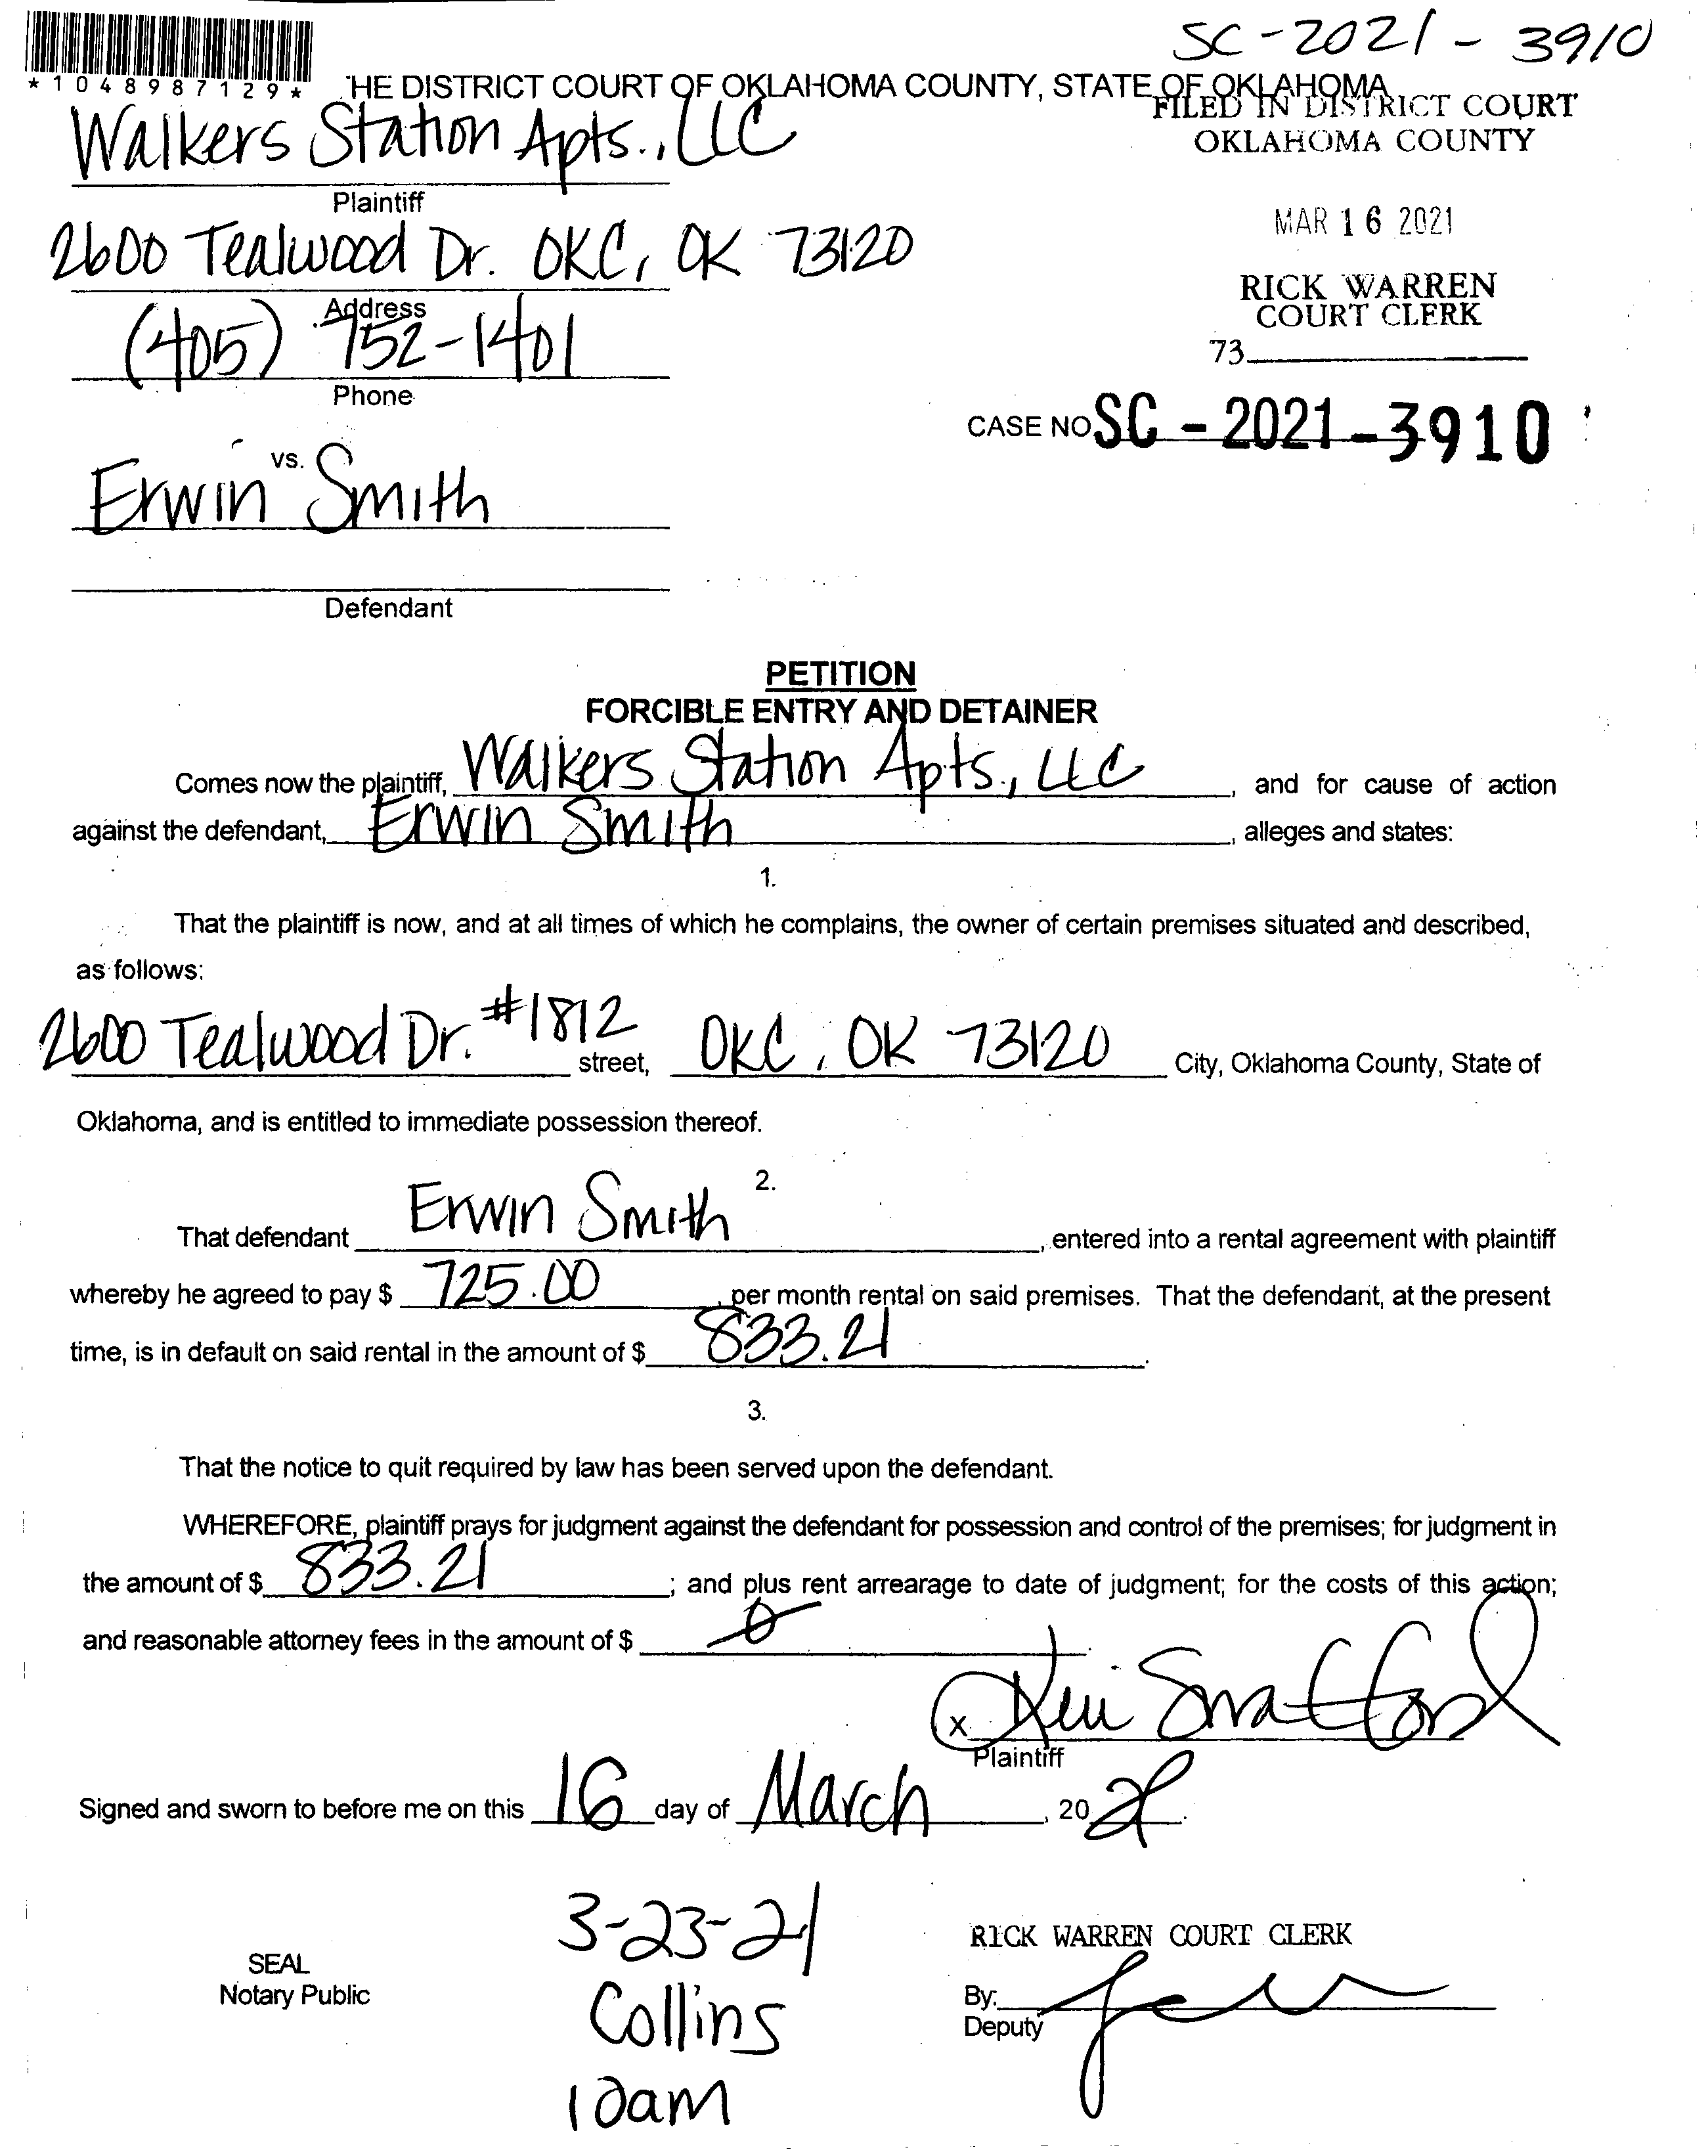 SC-2021-3910
*1048987129*
HE DISTRICT COURT OF OKLAHOMA COUNTY, STATE OF OKLAHOMA
FILED IN DISTRICT COURT
OKLAHOMA COUNTY
Walkers Station Apts., LLC
Plaintiff
MAR 16 2021
2600 Tealwood Dr. OKC, OK 73120
Address
RICK WARREN
COURT CLERK
(405) 752-1401
73
Phone
CASE NO SC-2021-3910
vs.
Erwin Smith
Defendant
PETITION
FORCIBLE ENTRY AND DETAINER
Comes now the plaintiff, Walkers Station Apts., LLC, and for cause of action
against the defendant, Erwin Smith, alleges and states:
1.
That the plaintiff is now, and at all times of which he complains, the owner of certain premises situated and described,
as follows:
2600 Tealwood Dr. #1812 street, OKC, OK 73120 City, Oklahoma County, State of
Oklahoma, and is entitled to immediate possession thereof.
2.
That defendant Erwin Smith, entered into a rental agreement with plaintiff
whereby he agreed to pay $ 725.00, per month rental on said premises. That the defendant, at the present
time, is in default on said rental in the amount of $ 833.21.
3.
That the notice to quit required by law has been served upon the defendant.
WHEREFORE, plaintiff prays for judgment against the defendant for possession and control of the premises; for judgment in
the amount of $ 833.21; and plus rent arrearage to date of judgment; for the costs of this action;
and reasonable attorney fees in the amount of $ 0.
x
Plaintiff
Signed and sworn to before me on this 16 day of March, 2021.
3-23-21
Collins
10am
SEAL
Notary Public
RICK WARREN COURT CLERK
By:
Deputy